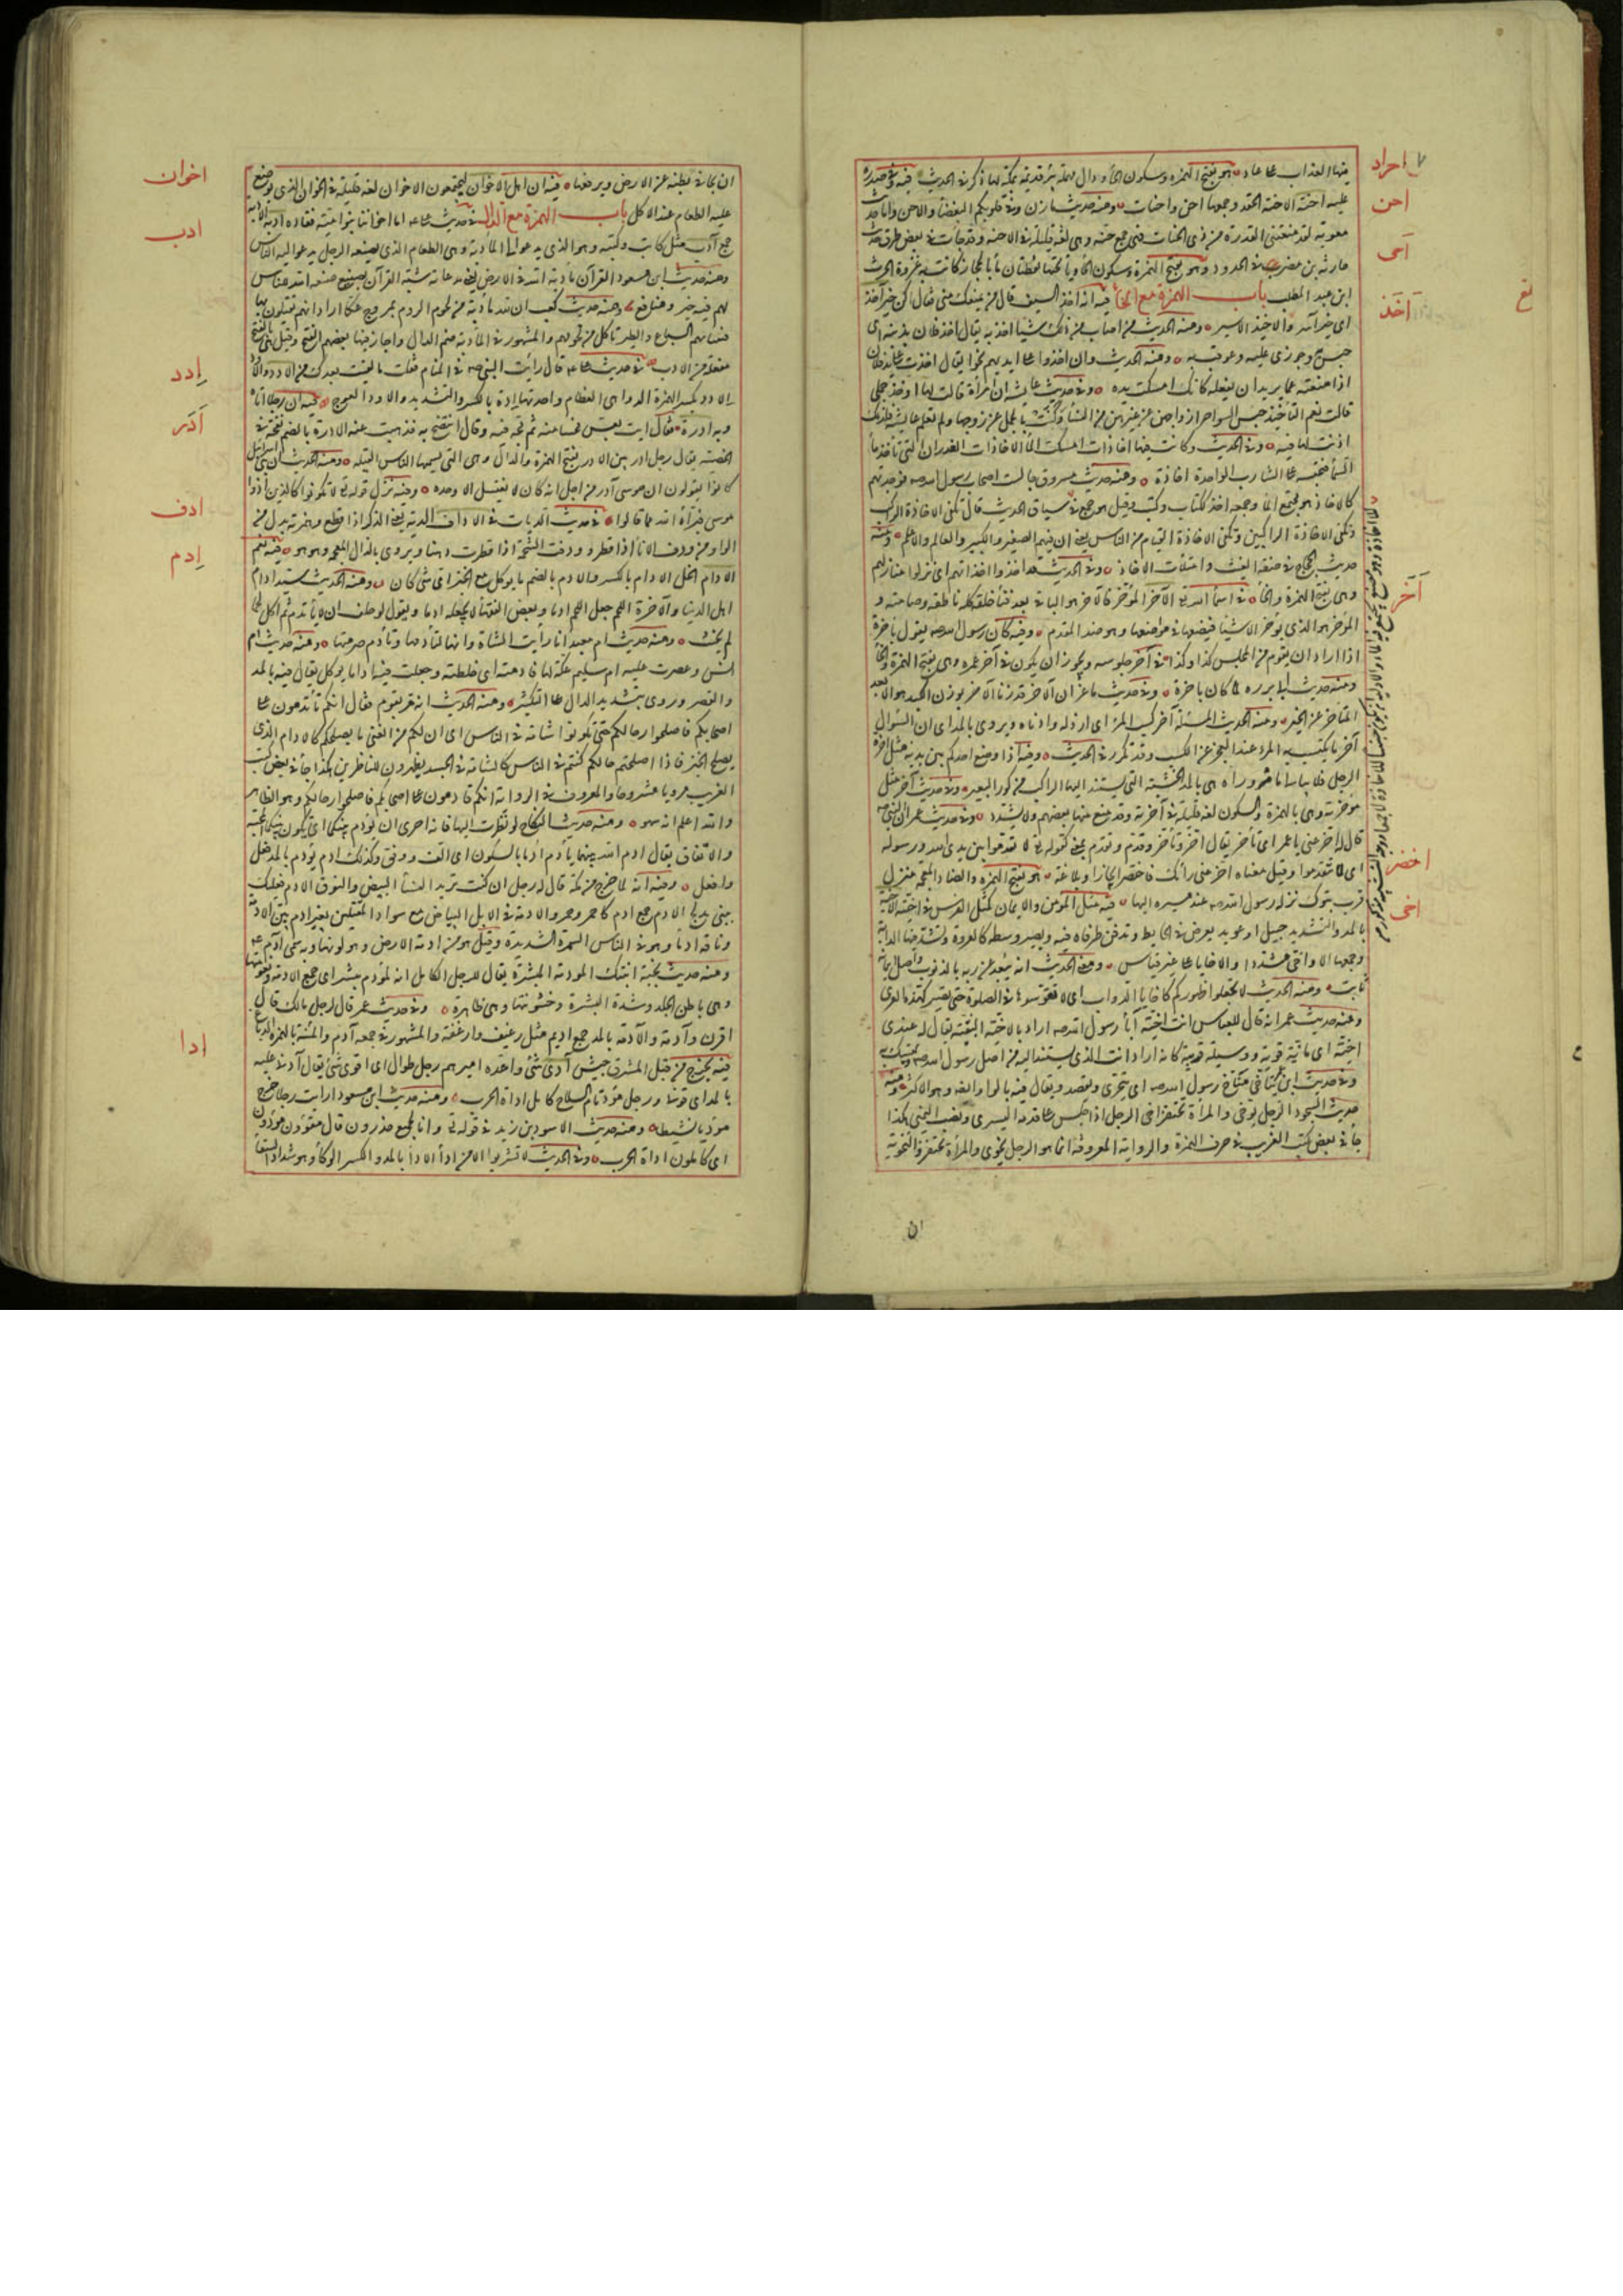 احراد
احن
احى
اخذ
اخر
اخضر
اخى
منها العذاب على عاد هو بفتح الهمزة وسكون الحاء ودال مهملة بئر قديمة بمكة لها ذكر في الحديث فيه وفي صدره
عليه احنة الاحنة الحقد وجمعها احن واحنات ومنه حديث مازن وفي قلوبكم البغضاء والاحن واما حديث
معوية لقد منعتني القدرة من ذوي الحنات فهي جمع حنة وهي لغة قليلة في الاحنة وقد جاءت في بعض طرق حديث
حارثة بن مضرب في الحدود هو بفتح الهمزة وسكون الحاء وياء تحتها نقطتان ماء بالحجاز كانت به غزوة
ابن عبد المطلب باب الهمزة مع الخاء فيه انه اخذ السيف قال من يمنعك مني فقال كن خير آخذ
اى خير آسر والاخيذ الاسير ومنه الحديث من اصاب من ذلك شيئا اخذ به يقال اخذ فلان بذنبه اى
حبس وجوزى عليه وعوقب به ومنه الحديث وان اخذوا على ايديهم نجوا يقال اخذت على يد فلان
اذا منعته عما يريد ان يفعله كانك امسكت يده وفي حديث عايشة ان امرأة قالت لها اوخذ جملي
قالت نعم التاخيذ حبس السواحر ازواجهن عن غيرهن من النساء وكنت بالجمل عن زوجها ولم تعلم عايشة فلذلك
اذنت لها فيه وفي الحديث وكانت فيها اخاذات امسكت الماء الاخاذات الغدران التي تاخذ ماء
السماء فتحبسه على الشارب الواحدة اخاذة ومنه حديث مسروق جالست اصحاب رسول الله فوجدتهم
كالاخاذ هو مجتمع الماء وجمعه اخذ ككتاب وكتب وقيل هو جمع في سياق الحديث قال تكفي الاخاذة الراكب
وتكفي الاخاذة الراكبين وتكفي الاخاذة الفيام من الناس يعني ان فيهم الصغير والكبير والعالم والاعلم ومنه
حديث الحجاج في صفة الغيث وامتلأت الاخاذ وفي الحديث قد اخذوا اخذاتهم اى نزلوا منازلهم
وهي بفتح الهمزة والخاء في اسماء الله تعالى الآخر المؤخر فالآخر هو الباقي بعد فناء خلقه كله ناطقه وصامته و
المؤخر هو الذي يؤخر الاشياء فيضعها في مواضعها وهو ضد المقدم وفيه كان رسول الله يقول بآخرة
اذا اراد ان يقوم من المجلس كذا وكذا في آخر جلوسه ويجوز ان يكون في آخر عمره وهي بفتح الهمزة والخاء
ومنه حديث ابي برزة لما كان باخرة وفي حديث ماعز ان الاخر قد زنا الاخر بوزن الكبد هو الابعد
المتاخر عن الخير ومنه الحديث المسئلة آخر كسب المرء اى ارذله وادناه ويروى بالمد اى ان السؤال
آخر ما يكتسب به المرء عند العجز عن الكسب وقد تكرر في الحديث وفيه اذا وضع احدكم بين يديه مثل آخرة
الرحل فلا يبالي ما مر وراءه هي بالمد الخشبة التي يستند اليها الراكب من كور البعير وفي حديث آخر مثل
مؤخرته وهي بالهمزة والسكون لغة قليلة في آخرته وقد منع منها بعضهم ولا يشدد وفي حديث عمر ان النبي
قال له اخر عني يا عمر اى تأخر يقال اخر وتأخر وقدم وتقدم بمعنى كقوله تعالى لا تقدموا بين يدي الله ورسوله
اى لا تتقدموا وقيل معناه اخر عني رأيك فاختصر ايجازا وبلاغة هو بفتح الهمزة والضاد المعجمة منزل
قرب تبوك نزله رسول الله عند مسيره اليها فيه مثل المؤمن والايمان كمثل الفرس في آخيته الآخية
بالمد والتشديد حبيل او عويد يعرض في الحايط ويدفن طرفاه فيه ويصير وسطه كالعروة وتشد فيها الدابة
وجمعها الاواخي مشددا والاخايا على غير قياس ومعنى الحديث انه يبعد عن ربه بالذنوب واصل ايمانه
ثابت ومنه الحديث لا تجعلوا ظهوركم كاخايا الدواب اى لا تقوسوها في الصلوة حتى تصير كهذه العرى
ومنه حديث عمر انه قال للعباس انت اخية آباء رسول الله اراد بالاخية البقية يقال له عندي
اخية اى ماتة قوية ووسيلة قريبة كانه اراد انت الذي يستند اليه من اصل رسول الله ويتمسك به
وفي حديث ابن عمر يتاخى متاخ رسول الله اى يتحرى ويقصد ويقال فيه بالواو ايضا وهو الاكثر ومنه
حديث السجود الرجل يؤخي والمرأة تحتفز اخى الرجل اذا جلس على قدمه اليسرى ونصب اليمنى هكذا
جاء في بعض كتب الغريب في حرف الهمزة والرواية المعروفة انما هو الرجل يخوي والمرأة تحتفز والتخوية
ان
اخوان
ادب
ادد
ادر
ادف
ادم
ادا
ان يجافي بطنه عن الارض ويرفعها فيه ان اهل الاخوان ليجتمعون الاخوان لغة قليلة في الخوان الذي يوضع
عليه الطعام عند الاكل باب الهمزة مع الدال في حديث علي اما اخواننا بنو امية فقادة ادبة الادبة
جمع آدب مثل كاتب وكتبة وهو الذي يدعو الى المأدبة وهي الطعام الذي يصنعه الرجل يدعو اليه الناس
ومنه حديث ابن مسعود القرآن مأدبة الله في الارض يعني مدعاته شبه القرآن بصنيع صنعه الله للناس
لهم فيه خير ومنافع ومنه حديث كعب ان لله مأدبة من لحوم الروم بمروج عكا اراد انهم يقتلون بها
فتنتابهم السباع والطير تاكل من لحومهم والمشهور في المأدبة ضم الدال واجاز فيها بعضهم الفتح وقيل هي بالفتح
مفعلة من الادب في حديث علي قال رأيت النبي في المنام فقلت ما لقيت بعدك من الادد والاود
الادد بكسر الهمزة الدواهي العظام واحدتها ادة بالكسر والتشديد والاود العوج فيه ان رجلا اتاه
وبه ادرة فقال ايت بعس فحسا منه ثم مجه فيه وقال انتضح به فذهبت عنه الادرة بالضم نفخة في
الخصية يقال رجل ادر بين الادر بفتح الهمزة والدال وهي التي يسميها الناس القيلة ومنه الحديث ان بني اسرائيل
كانوا يقولون ان موسى آدر من اجل انه كان لا يغتسل الا وحده وفيه نزل قوله تعالى لا تكونوا كالذين آذوا
موسى فبرأه الله مما قالوا في حديث الديات في الاداف الدية يعني الذكر اذا قطع وهمزته بدل من
الواو من ودف الاناء اذا قطر وودفت الشحمة اذا قطرت دهنا ويروى بالذال المعجمة وهو هو فيه نعم
الادام الخل الادام بالكسر والادم بالضم ما يوكل مع الخبز اى شئ كان ومنه الحديث سيد ادام
اهل الدنيا والآخرة اللحم جعل اللحم ادما وبعض الفقهاء لا يجعله ادما ويقول لو حلف ان لا يأتدم ثم اكل لحما
لم يحنث ومنه حديث ام معبد انا رايت الشاة وانها لتأدمها وتأدم صرمتها ومنه حديث
انس وعصرت عليه ام سليم عكة لها فادمته اى خلطته وجعلت فيه اداما يوكل يقال فيه بالمد
والقصر وروى بتشديد الدال على التكثير ومنه الحديث انه مر بقوم فقال انكم تأتدمون على
اصحابكم فاصلحوا رحالكم حتى تكونوا شامة في الناس اى ان لكم من الغنى ما يصلحكم كالادام الذي
يصلح الخبز فاذا اصلحتم حالكم كنتم في الناس كالشامة في الجسد يظهرون للناظرين هكذا جاء في بعض كتب
الغريب مرويا مشروحا والمعروف في الرواية انكم قادمون على اصحابكم فاصلحوا رحالكم وهو الظاهر
والله اعلم انه سهو ومنه حديث النكاح لو نظرت اليها فانه احرى ان يؤدم بينكما اى يكون بينكما المحبة
والاتفاق يقال ادم الله بينهما يأدم ادما بالسكون اى الف ووفق وكذلك آدم يؤدم بالمد فعل
وافعل وفيه انه لما خرج من مكة قال له رجل ان كنت تريد النساء البيض والنوق الادم فعليك
ببني مدلج الادم جمع آدم كاحمر وحمر والادمة في الابل البياض مع سواد المقلتين بعير آدم بين الادمة
وناقة ادماء وهو في الناس السمرة الشديدة وقيل هو من ادمة الارض وهو لونها وبه سمى آدم
ومنه حديث نجبة ابنتك المؤدمة المبشرة يقال للرجل الكامل انه لمؤدم مبشر اى جمع لين الادمة ونعومتها
وهي باطن الجلد وشدة البشرة وخشونتها وهي ظاهره وفي حديث عمر قال لرجل مالك قال
اقرن وآدمة والآدمة بالمد جمع اديم مثل رغيف وارغفة والمشهور في جمعه ادم والمنية بالهمزة الدباغ
فيه يخرج من قبل المشرق جيش آدى شئ واعده اميرهم رجل طوال اى اقوى شئ يقال آدني عليه
بالمد اى قوني ورجل مؤد تام السلاح كامل اداة الحرب ومنه حديث ابن مسعود ارايت رجلا خرج
مؤديا نشيطا ومنه حديث الاسود بن زيد في قوله تعالى وانا لجميع حذرون قال مقوون مؤدون
اى كاملون اداة الحرب وفي الحديث لا تشربوا الا من ذي اداء الاداء بالمد والكسر الوكاء وهو شداد السقاء